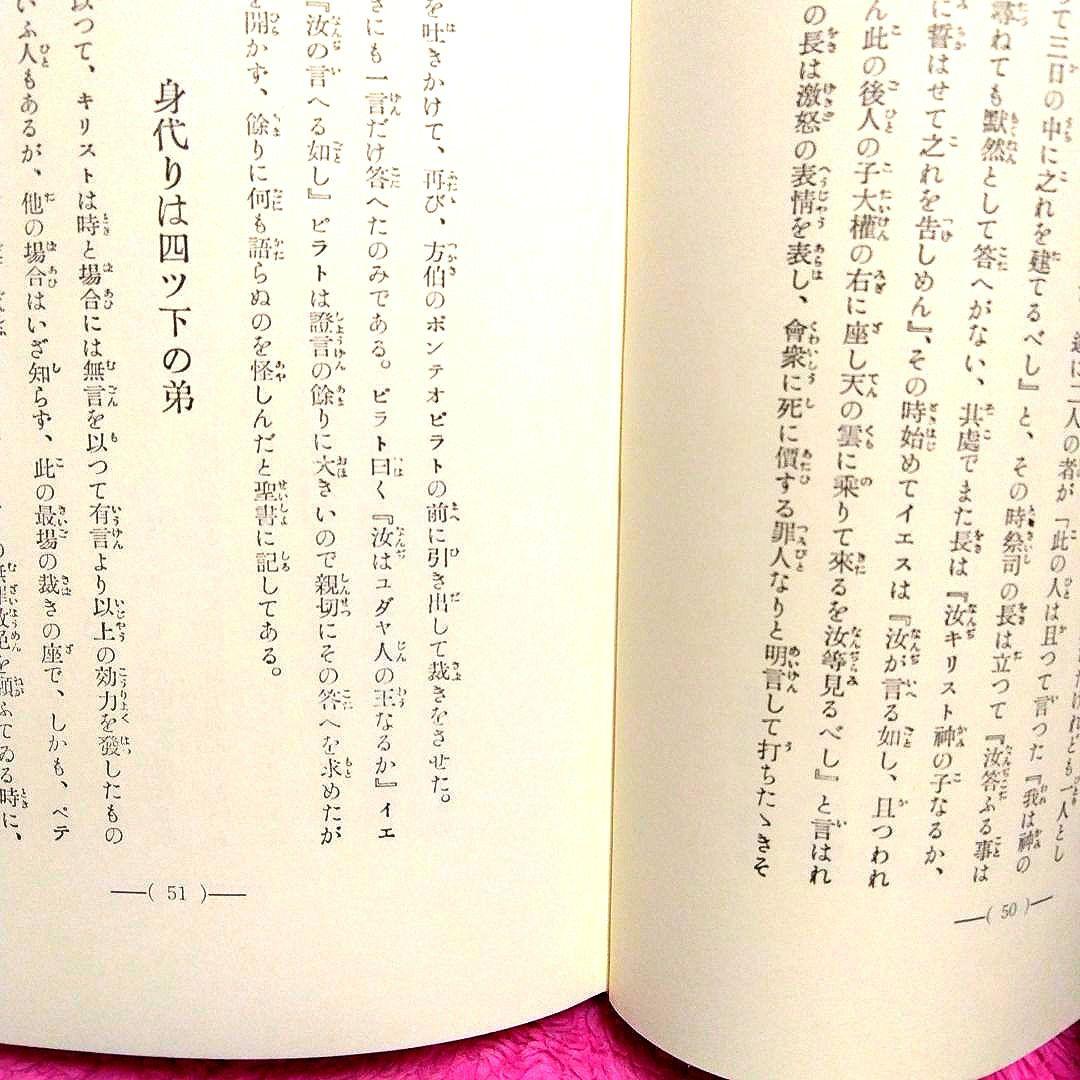 遂に二人の者が『此の人は且つて言つた『我は神の
つて三日の中に之れを建てるべし』と、その時祭司の長は立つて『汝答ふる事は
尋ねても默然として答へがない、其處でまた長は『汝キリスト神の子なるか、
に誓はせて之れを告しめん』、その時始めてイエスは『汝が言る如し、且つわれ
ん此の後人の子大權の右に座し天の雲に乘りて來るを汝等見るべし』と言はれ
の長は激怒の表情を表し、會衆に死に價する罪人なりと明言して打ちたゝきそ
―( 50 )―
を吐きかけて、再び、方伯のポンテオピラトの前に引き出して裁きをさせた。
さにも一言だけ答へたのみである。ピラト曰く『汝はユダヤ人の王なるか』イエ
『汝の言へる如し』ピラトは證言の餘りに大きいので親切にその答へを求めたが
開かず、餘りに何も語らぬのを怪しんだと聖書に記してある。
身代りは四ツ下の弟
以つて、キリストは時と場合には無言を以つて有言より以上の効力を發したもの
いふ人もあるが、他の場合はいざ知らず、此の最場の裁きの座で、しかも、ペテ
を願ふてゐる時に、
―( 51 )―